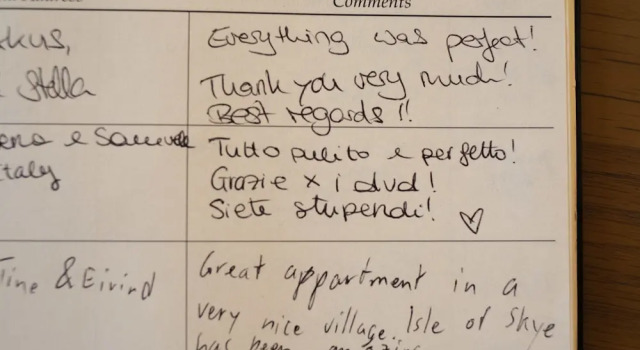 Comments
Everything was perfect!
Stella
Thank you very much!
Best regards !!
e Samuele
Italy
Tutto pulito e perfetto!
Grazie x i dvd!
Siete stupendi! ♡
Tine & Eivind
Great appartment in a
very nice village. Isle of Skye
has been